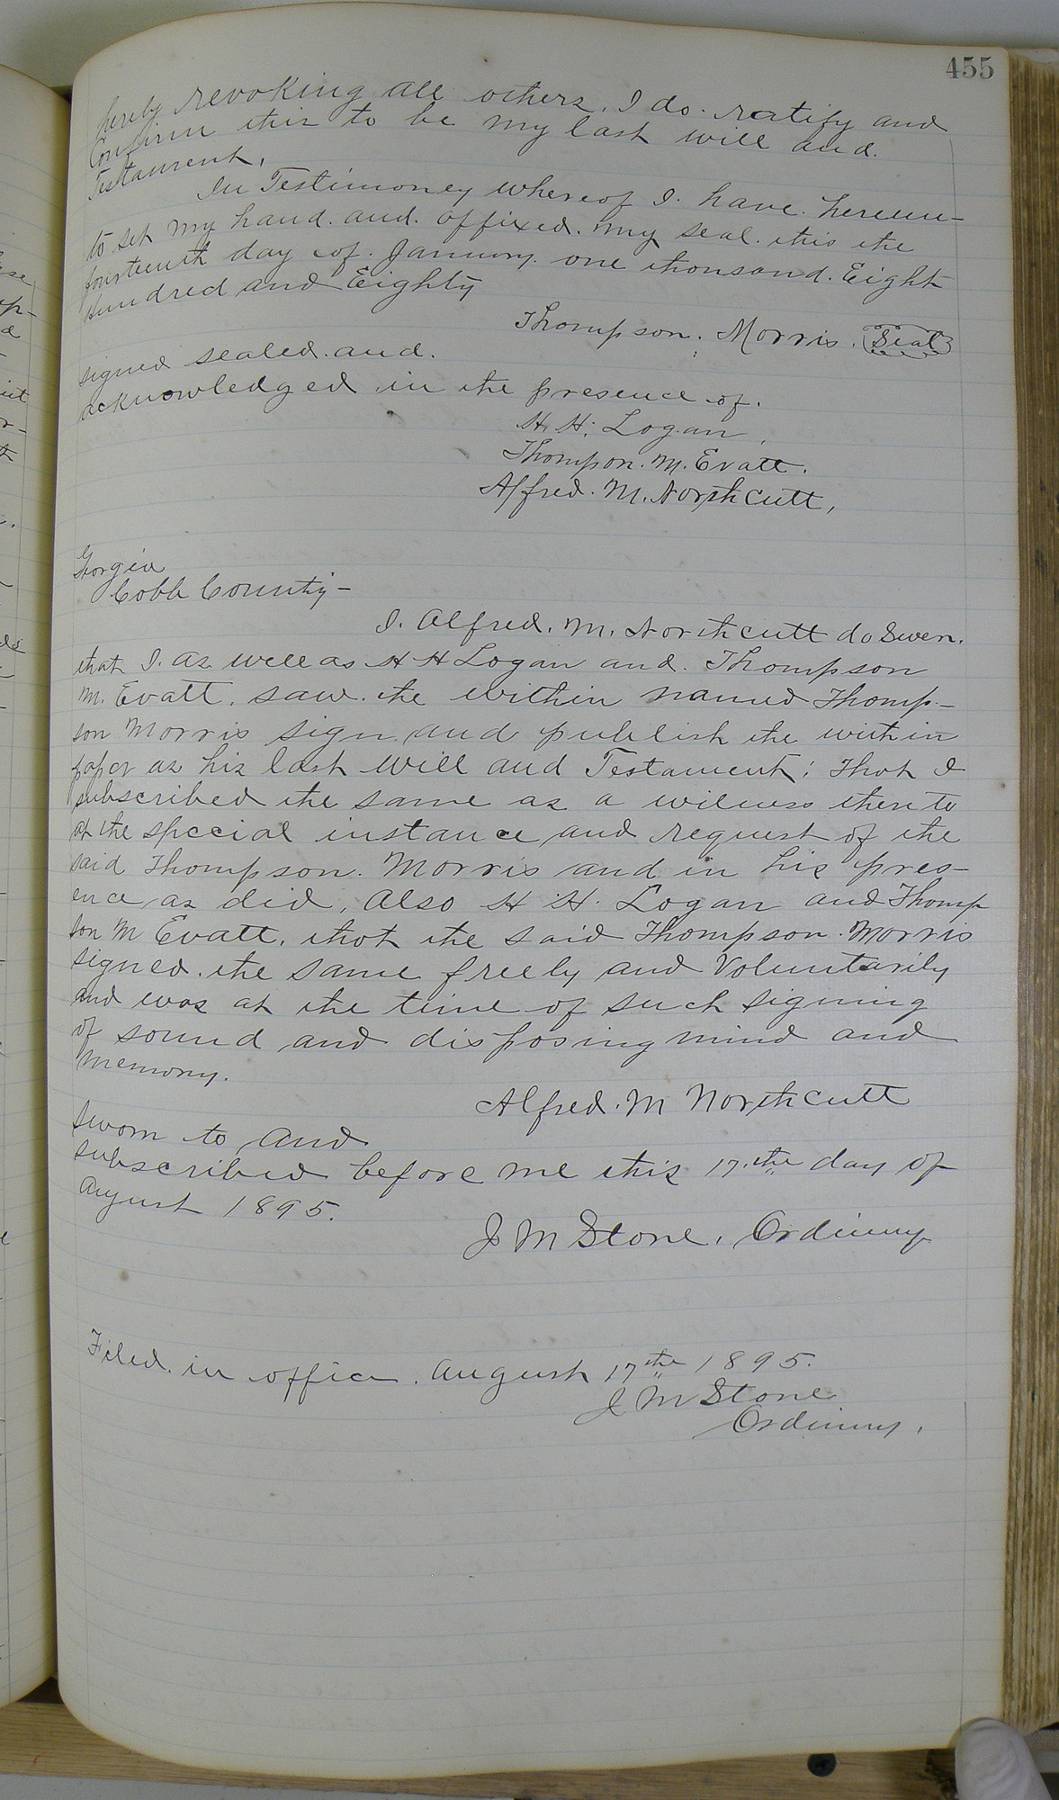 455
hereby revoking all others. I do. ratify and
Confirm this to be my last will and.
Testament.
In Testimoney whereof I. have. hereun-
to set my hand. and. affixed. my seal. this the
fourteenth day of. January. one thousand. Eight
Hundred and Eighty
Thompson. Morris. Seal
signed sealed. and.
acknowledged in the presence of.
H. H. Logan,
Thompson. M. Evatt.
Alfred. M. Northcutt,
Georgia
Cobb County-
I. Alfred. M. Northcutt do Swen.
that I. as well as H H Logan and. Thompson
M. Evatt. saw. the within named Thomp-
son Morris sign and publish the within
paper as his last will and Testament; that I
subscribed the same as a witness thereto
at the special instance and request of the
said Thompson. Morris and in his pres-
ence as did, also H H. Logan and Thomp
son M Evatt. that the said Thompson. Morris
signed. the same freely and Voluntarily
and was at the time of such signing
of sound and disposing mind and
memory.
Alfred. M Northcutt
Sworn to and
subscribed before me this 17.th day of
August 1895.
J M Stone, Ordinary
Filed. in office. August 17th 1895.
J M Stone
Ordinary.